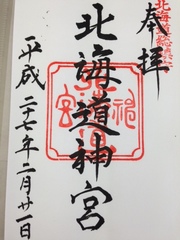 奉拝
北海道総鎮守
北海道神宮
平成二十七年二月廿一日